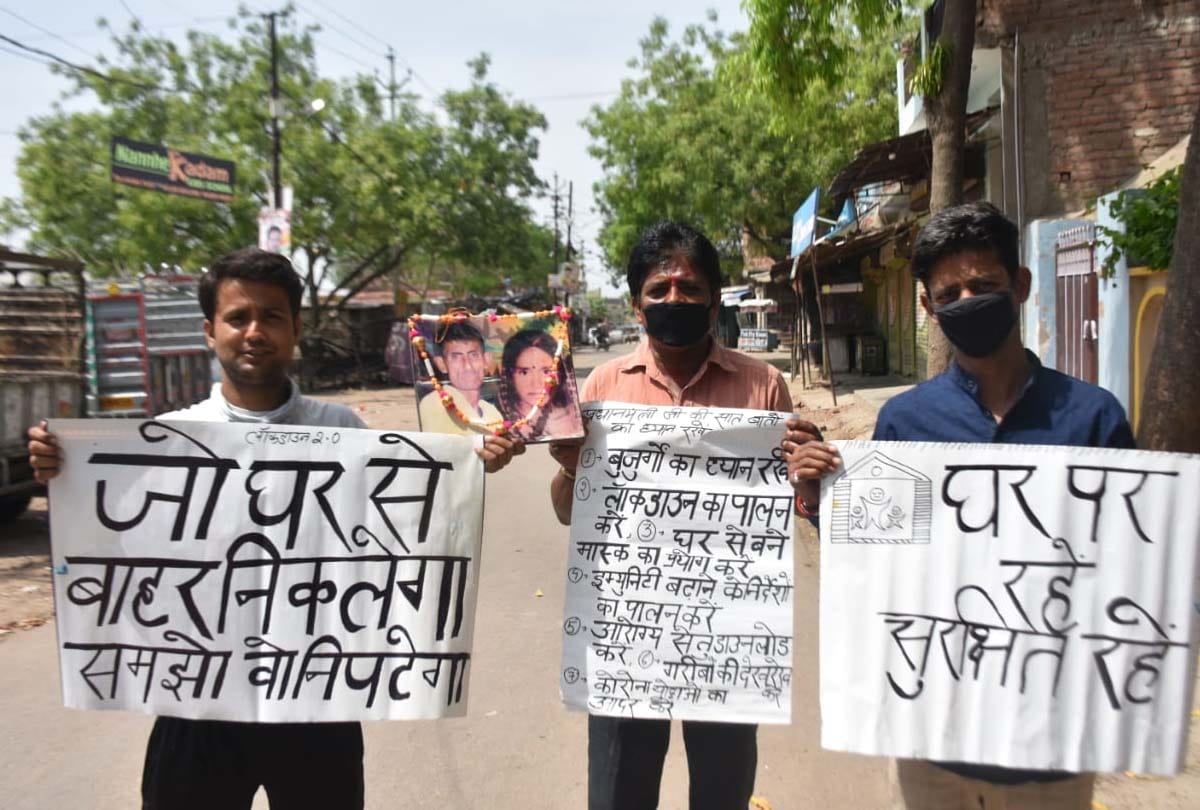 Nannhe Kadam
लॉकडाउन 2.0
जो घर से
बाहर निकलेगा
समझो वो निपटेगा
प्रधानमंत्री जी की सात बातों
का ध्यान रखें
① बुजुर्गों का ध्यान रखें
②- लॉकडाउन का पालन
करें, ③- घर से बने
मास्क का प्रयोग करें
④- इम्युनिटी बढाने के निर्देशों
का पालन करें
⑤- आरोग्य सेतु डाउनलोड
करें, ⑥- गरीबों की देखरेख
करें
⑦- कोरोना योद्धाओं का
आदर करें
घर पर
रहें
सुरक्षित रहें